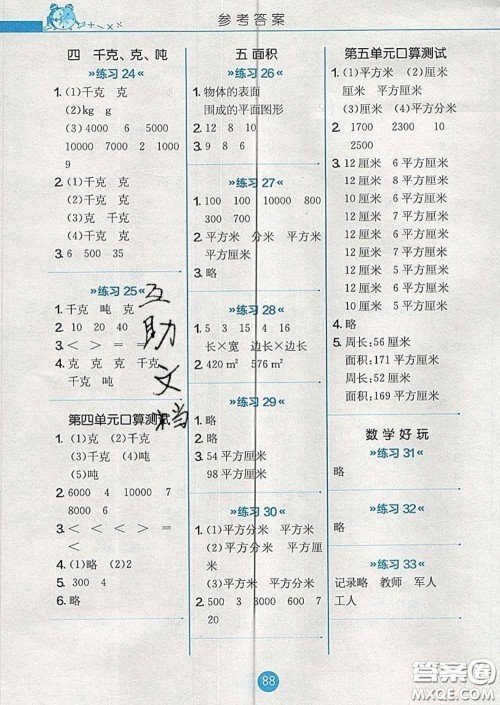 参考答案
四 千克、克、吨
»练习24«
1. (1)千克 克
(2)kg g
(3)4000 6 5000
10000 7000 2 1000
9
2. (1)千克 克
(2)千克 克
(3)克 千克
(4)千克 克
3. 6 500 35
»练习25«
1. 千克 吨 克
2. 10 20 40
3. < > = = >
4. 克 克 克 千克
千克 吨 千克
第四单元口算测试
1. (1)克 (2)千克
(3)千克 (4)吨
(5)吨
2. 6000 4 10000 7
8000 6
3. < < < > =
<
4. (1)略 (2)2
5. 300 4
6. 略
五 面积
»练习26«
1. 物体的表面
围成的平面图形
2. 12 8 10
3. 9 8 6
»练习27«
1. 100 100 10000 800
300 700
2. 平方米 分米 平方米
3. 略
»练习28«
1. 5 3 15 4 16
长×宽 边长×边长
2. 420 m² 576 m²
»练习29«
1. 略
2. 略
3. 54 平方厘米
98 平方厘米
»练习30«
1. (1)平方分米 平方厘米
(2)平方厘米 平方分米
平方厘米
(3)平方米 平方分米
2. 500 3 8000 500 7
20
第五单元口算测试
1. (1)平方米 (2)厘米
厘米 平方厘米
(3)平方分米 (4)平方米
2. 1700 2300 10
2500
3. 12厘米 6平方厘米
12厘米 8平方厘米
10厘米 4平方厘米
12厘米 9平方厘米
10厘米 6平方厘米
12厘米 5平方厘米
12厘米 6平方厘米
10厘米 5平方厘米
4. 略
5. 周长:56厘米
面积:171平方厘米
周长:52厘米
面积:169平方厘米
数学好玩
»练习31«
略
»练习32«
略
»练习33«
记录略 教师 军人
工人
互助文档
88
答案圈
MXQE.COM